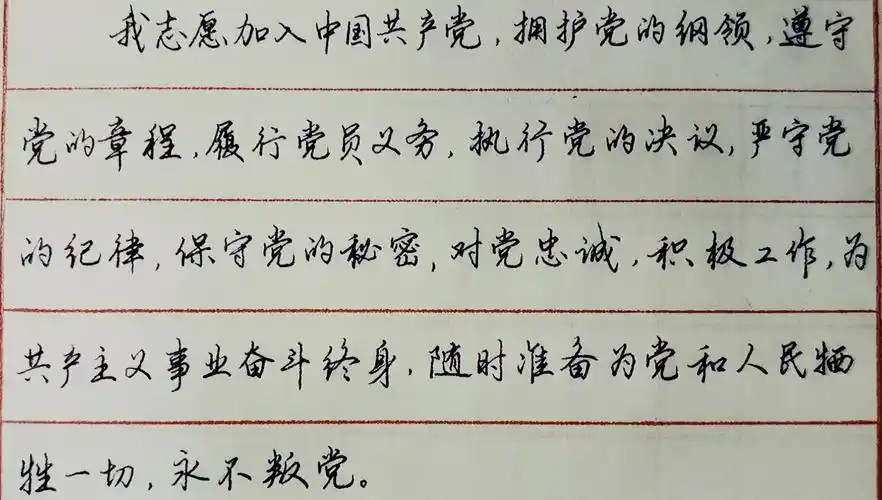 我志愿加入中国共产党，拥护党的纲领，遵守
党的章程，履行党员义务，执行党的决议，严守党
的纪律，保守党的秘密，对党忠诚，积极工作，为
共产主义事业奋斗终身，随时准备为党和人民牺
牲一切，永不叛党。